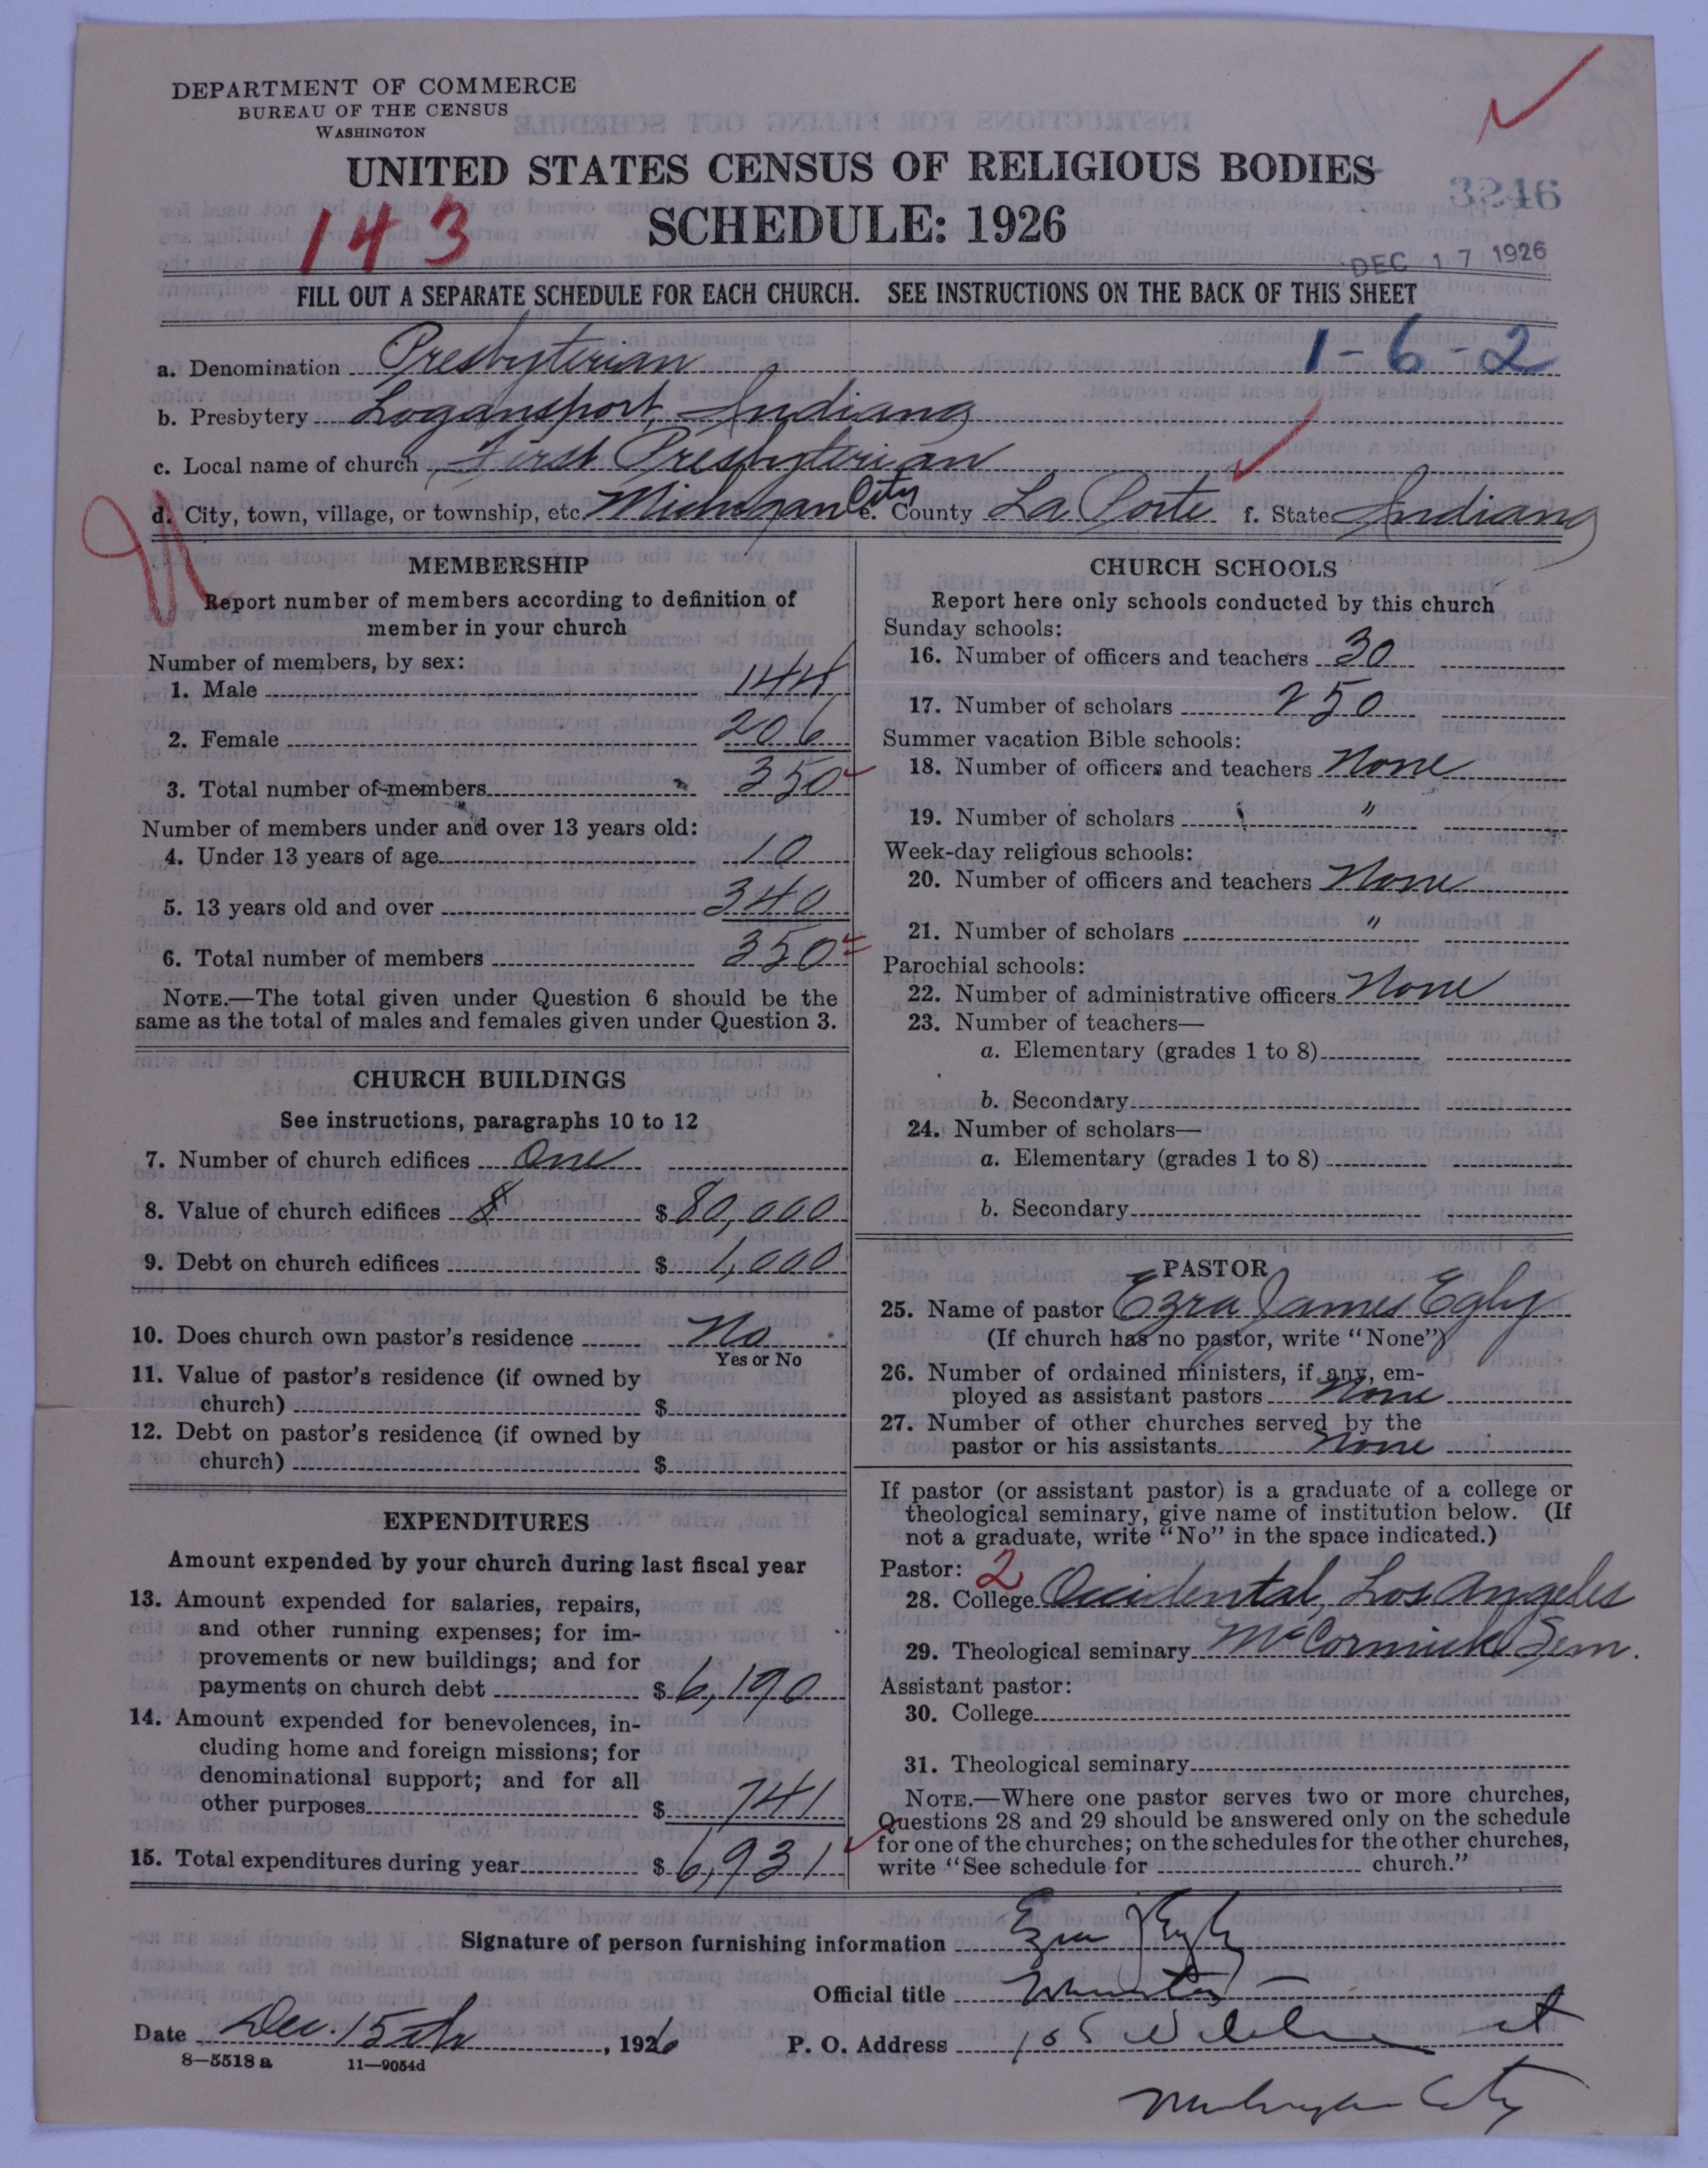 DEPARTMENT OF COMMERCE
BUREAU OF THE CENSUS
WASHINGTON
UNITED STATES CENSUS OF RELIGIOUS BODIES
3246
143 SCHEDULE: 1926
DEC 17 1926
FILL OUT A SEPARATE SCHEDULE FOR EACH CHURCH. SEE INSTRUCTIONS ON THE BACK OF THIS SHEET
1-6-2
a. Denomination Presbyterian
b. Presbytery Logansport, Indiana
c. Local name of church First Presbyterian
d. City, town, village, or township, etc. Michigan City e. County La Porte f. State Indiana
MEMBERSHIP
Report number of members according to definition of
member in your church
Number of members, by sex:
1. Male 144
2. Female 206
3. Total number of members 350
Number of members under and over 13 years old:
4. Under 13 years of age 10
5. 13 years old and over 340
6. Total number of members 350
NOTE.—The total given under Question 6 should be the
same as the total of males and females given under Question 3.
CHURCH BUILDINGS
See instructions, paragraphs 10 to 12
7. Number of church edifices One
8. Value of church edifices $ 80,000
9. Debt on church edifices $ 1,000
10. Does church own pastor's residence No
Yes or No
11. Value of pastor's residence (if owned by
church) $
12. Debt on pastor's residence (if owned by
church) $
EXPENDITURES
Amount expended by your church during last fiscal year
13. Amount expended for salaries, repairs,
and other running expenses; for im-
provements or new buildings; and for
payments on church debt $ 6,190
14. Amount expended for benevolences, in-
cluding home and foreign missions; for
denominational support; and for all
other purposes $ 741
15. Total expenditures during year $ 6,931
CHURCH SCHOOLS
Report here only schools conducted by this church
Sunday schools:
16. Number of officers and teachers 30
17. Number of scholars 250
Summer vacation Bible schools:
18. Number of officers and teachers None
19. Number of scholars "
Week-day religious schools:
20. Number of officers and teachers None
21. Number of scholars "
Parochial schools:
22. Number of administrative officers None
23. Number of teachers—
a. Elementary (grades 1 to 8)
b. Secondary
24. Number of scholars—
a. Elementary (grades 1 to 8)
b. Secondary
PASTOR
25. Name of pastor Ezra James Egly
(If church has no pastor, write "None")
26. Number of ordained ministers, if any, em-
ployed as assistant pastors None
27. Number of other churches served by the
pastor or his assistants None
If pastor (or assistant pastor) is a graduate of a college or
theological seminary, give name of institution below. (If
not a graduate, write "No" in the space indicated.)
Pastor: 2
28. College Occidental, Los Angeles
29. Theological seminary McCormick Sem.
Assistant pastor:
30. College
31. Theological seminary
NOTE.—Where one pastor serves two or more churches,
Questions 28 and 29 should be answered only on the schedule
for one of the churches; on the schedules for the other churches,
write "See schedule for church."
Signature of person furnishing information Ezra J Egly
Official title Minister
Date Dec. 15th, 1926 P. O. Address st
8—5518 a 11—9054d
Michigan City